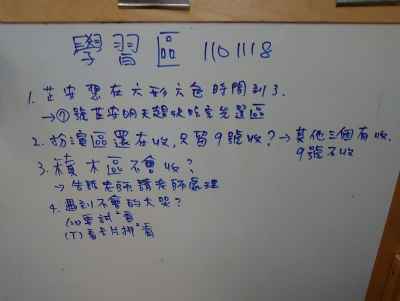 學習區 1101118
1. 芷安想在六形六色時間到了.
→⑦號芷安明天想快點去先選區
2. 扮演區還在收,只留9號收? → 其他三個有收,
9號不收
3. 積木區不會收?
→ 告訴老師請老師處理
4. 遇到不會的大哭?
(ω)要試看
(T)看卡片排看